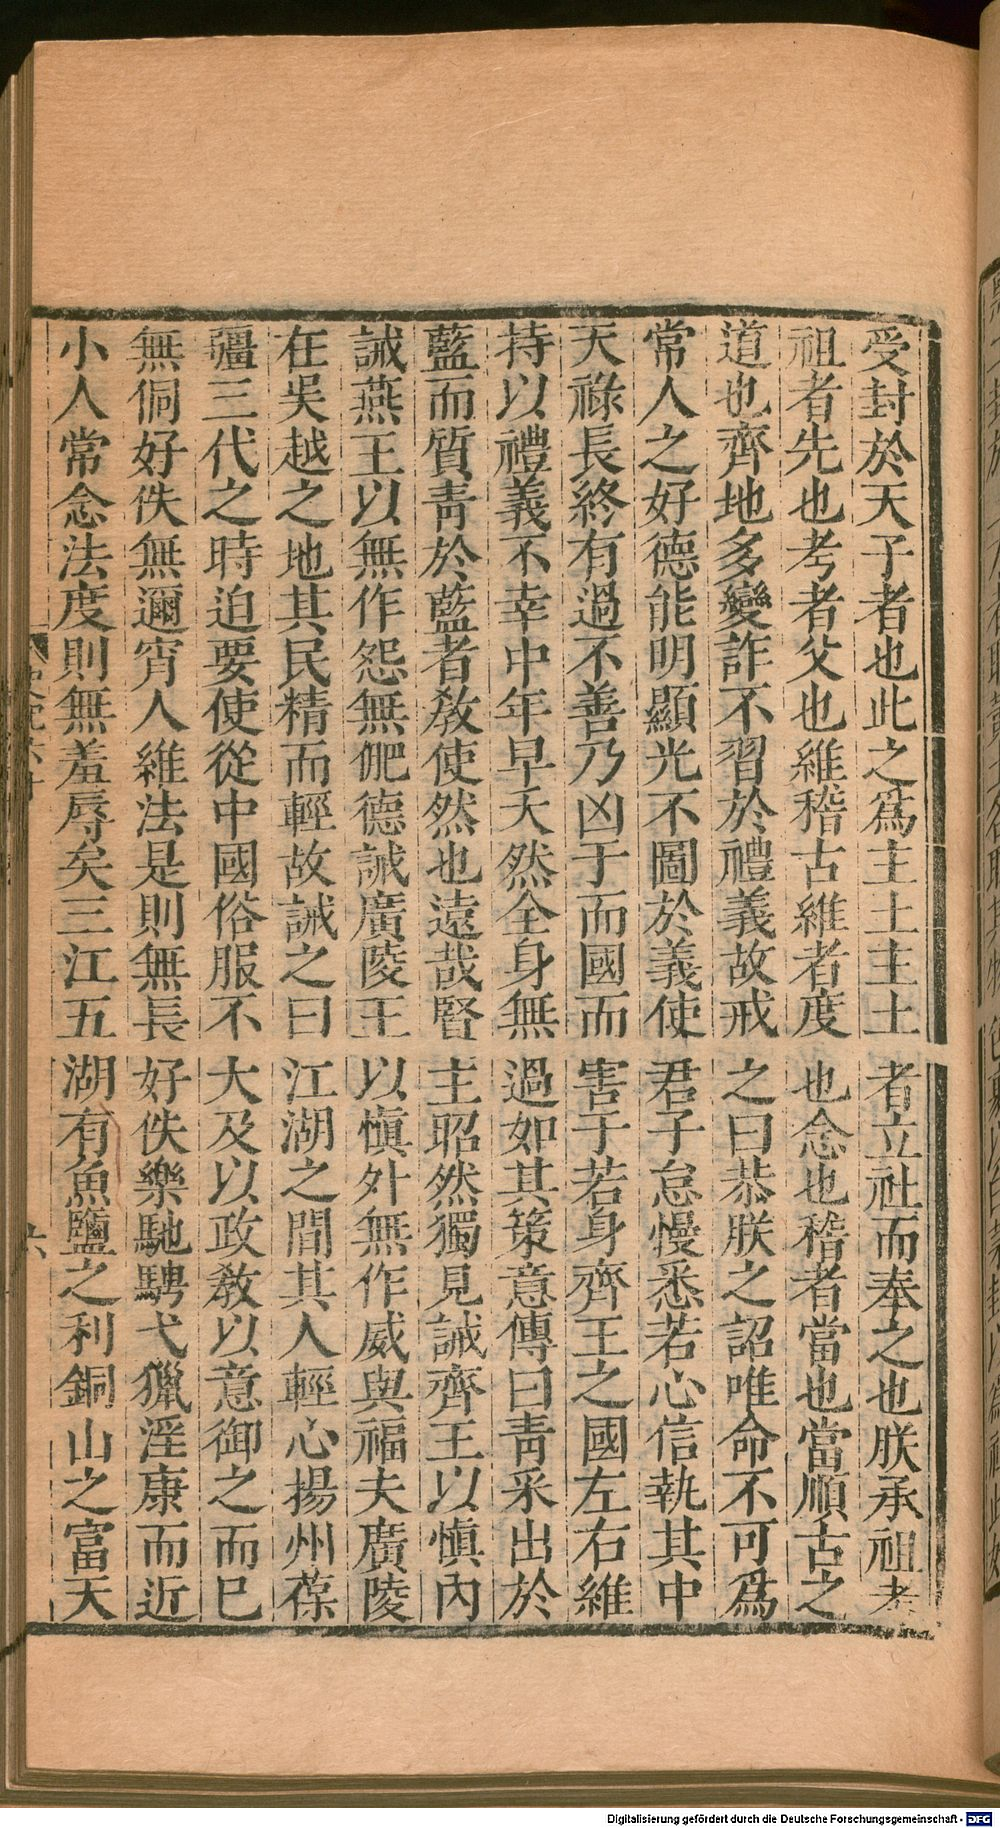 受封於天子者也此之爲主土主土者立社而奉之也朕承祖考
祖者先也考者父也維稽古維者度也念也稽者當也當順古之
道也齊地多變詐不習於禮義故戒之曰恭朕之詔唯命不可爲
常人之好德能明顯光不圖於義使君子怠慢悉若心信執其中
天祿長終有過不善乃凶于而國而害于若身齊王之國左右維
持以禮義不幸中年早夭然全身無過如其策意傳曰靑采出於
藍而質靑於藍者敎使然也遠哉賢主昭然獨見誡齊王以愼內
誡燕王以無作怨無俷德誡廣陵王以愼外無作威與福夫廣陵
在吳越之地其民精而輕故誡之曰江湖之間其人輕心揚州葆
疆三代之時迫要使從中國俗服不大及以政敎以意御之而已
無侗好佚無邇宵人維法是則無長好佚樂馳騁弋獵淫康而近
小人常念法度則無羞辱矣三江五湖有魚鹽之利銅山之富天
六
Digitalisierung gefördert durch die Deutsche Forschungsgemeinschaft - DFG